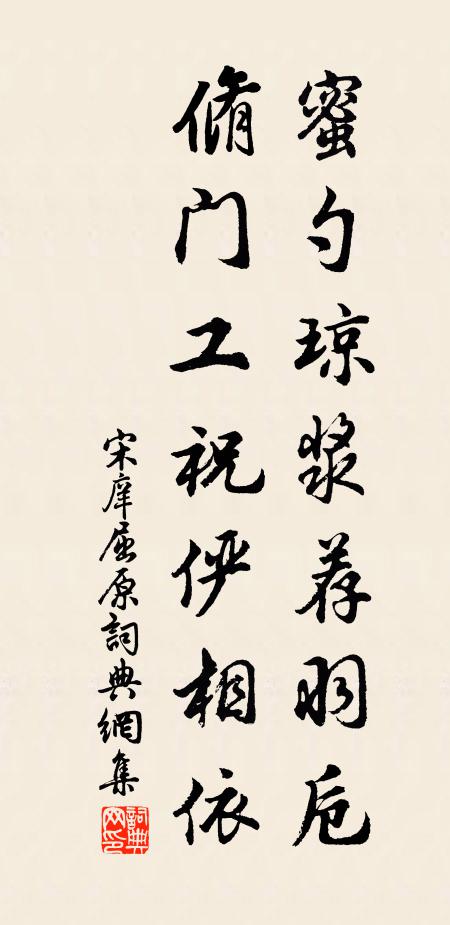 蜜勺琼浆荐羽卮
脩门工祝俨相依
宋庠屈原詞典網集
詞典
网印